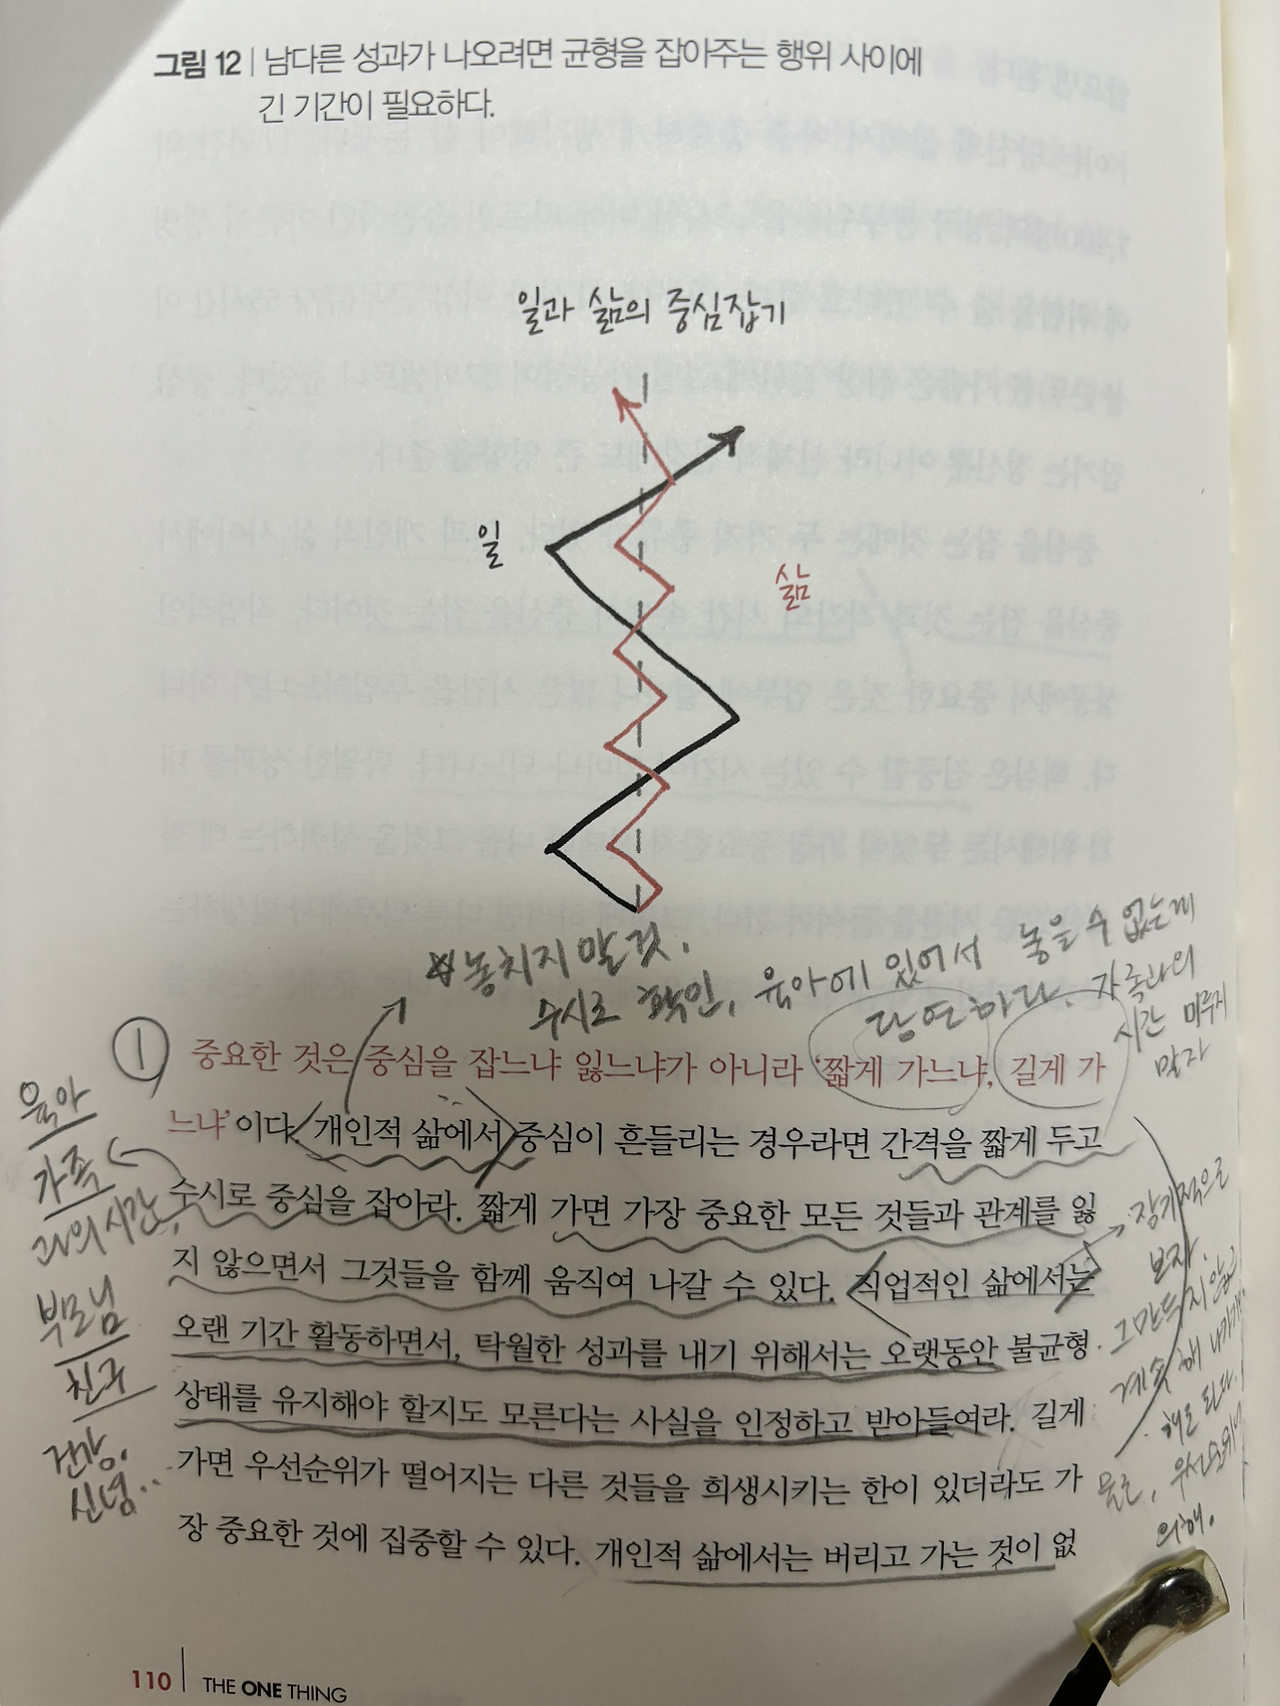 그림 12 | 남다른 성과가 나오려면 균형을 잡아주는 행위 사이에
긴 기간이 필요하다.
일과 삶의 중심잡기
일
삶
놓치지 말것.
수시로 확인, 육아에 있어서 놓을 수 없는게
당연하다. 가족과의
시간 미루지
말자
①
중요한 것은 중심을 잡느냐 잃느냐가 아니라 ‘짧게 가느냐, 길게 가
느냐’이다. 개인적 삶에서 중심이 흔들리는 경우라면 간격을 짧게 두고
수시로 중심을 잡아라. 짧게 가면 가장 중요한 모든 것들과 관계를 잃
지 않으면서 그것들을 함께 움직여 나갈 수 있다. 직업적인 삶에서는
오랜 기간 활동하면서, 탁월한 성과를 내기 위해서는 오랫동안 불균형
상태를 유지해야 할지도 모른다는 사실을 인정하고 받아들여라. 길게
가면 우선순위가 떨어지는 다른 것들을 희생시키는 한이 있더라도 가
장 중요한 것에 집중할 수 있다. 개인적 삶에서는 버리고 가는 것이 없
육아
가족
과의 시간,
부모님
친구
건강.
신념..
장기적으로
보자.
그만두지 않고
계속 해 나가게.
해도 된다.
물론, 우선순위에
의해.
110 | THE ONE THING